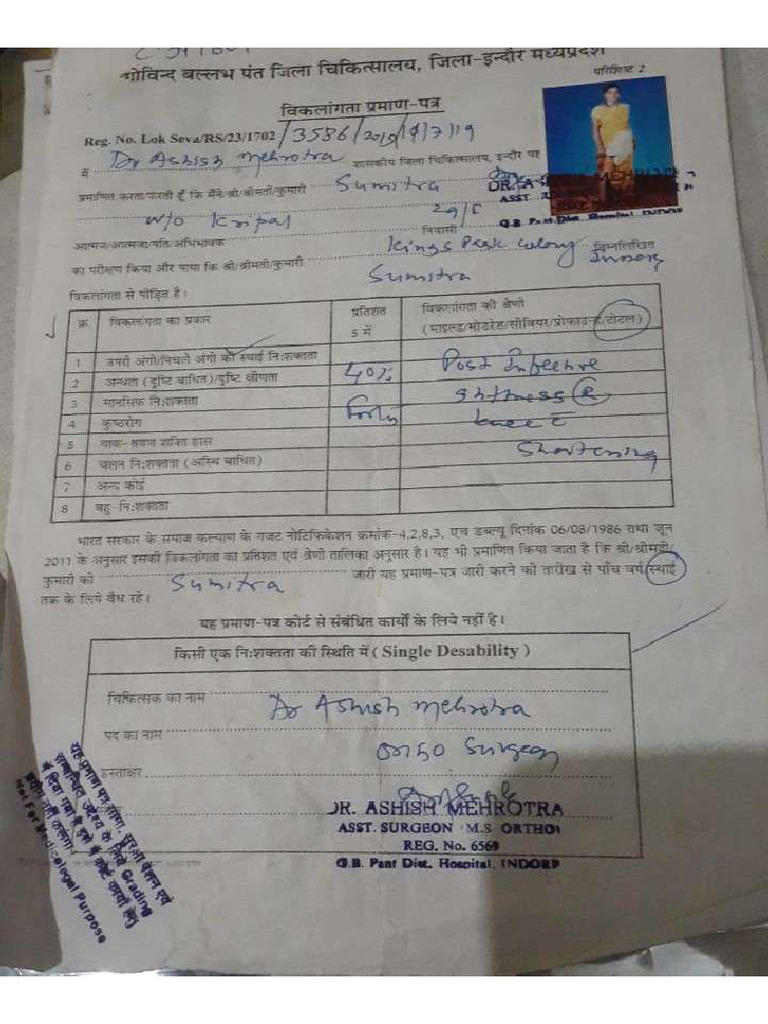 गोविन्द बल्लभ पंत जिला चिकित्सालय, जिला-इन्दौर मध्यप्रदेश
परिशिष्ट 2
विकलांगता प्रमाण-पत्र
Reg. No. Lok Seva/RS/23/1702/3586/2019/9/7/19
में Dr Ashish Mehrotra शासकीय जिला चिकित्सालय, इन्दौर यह
प्रमाणित करता/करती हूँ कि मैंने/श्री/श्रीमती/कुमारी Sumitra
w/o Kripal 29/F
आत्मज/आत्मजा/पति/अभिभावक निवासी Kings Park Colony Indore निम्नलिखित
का परीक्षण किया और पाया कि श्री/श्रीमती/कुमारी Sumitra
विकलांगता से पीड़ित है।
क्र विकलांगता का प्रकार प्रतिशत % में विकलांगता की श्रेणी (माइल्ड/मोडरेड/सीवियर/प्रोफाउन्ड/टोटल)
1 उपरी अंगो/निचले अंगो की स्थाई नि:शक्तता
2 अन्धता (दृष्टि बाधित)/दृष्टि क्षीणता 40% Post Infective
3 मानसिक नि:शक्तता
4 कुष्ठरोग knee
5 वाक-श्रवण शक्ति ह्रास Shortening
6 चलन नि:शक्तता (अस्थि बाधित)
7 अन्य कोई
8 बहु-नि:शक्तता
भारत सरकार के समाज कल्याण के गजट नोटिफिकेशन क्रमांक-4,2,8,3, एच डब्ल्यू दिनांक 06/08/1986 तथा जून
2011 के अनुसार इसकी विकलांगता का प्रतिशत एवं श्रेणी तालिका अनुसार है। यह भी प्रमाणित किया जाता है कि श्री/श्रीमती/
कुमारी को Sumitra जारी यह प्रमाण-पत्र जारी करने की तारीख से पाँच वर्ष/स्थाई
तक के लिये वैध रहे।
यह प्रमाण-पत्र कोर्ट से संबंधित कार्यो के लिये नहीं है।
किसी एक नि:शक्तता की स्थिति में ( Single Desability )
चिकित्सक का नाम Dr Ashish Mehrotra
पद का नाम Ortho Surgeon
हस्ताक्षर
DR. ASHISH MEHROTRA
ASST. SURGEON M.S ORTHO
REG. No. 6569
G.B. Pant Dist. Hospital, INDORE
Not For Medicolegal Purpose